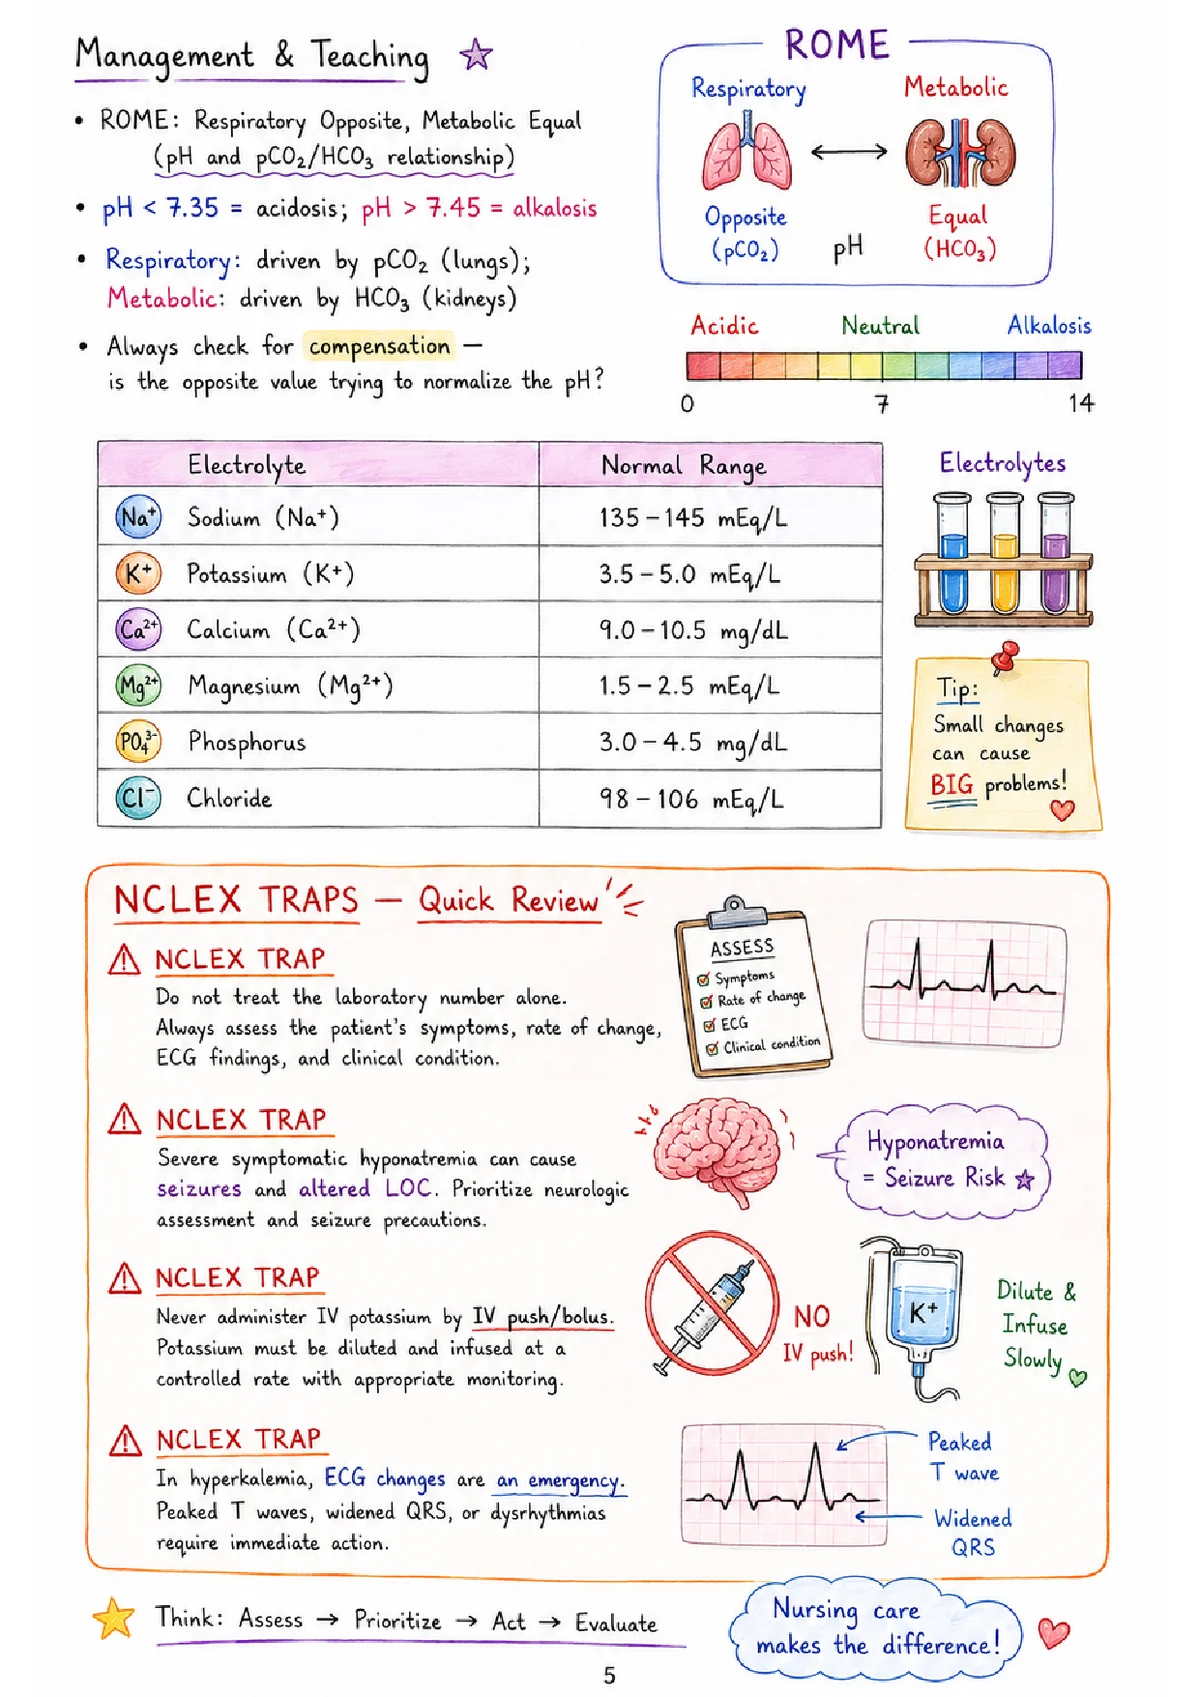 Management & Teaching
• ROME: Respiratory Opposite, Metabolic Equal
(pH and pCO₂/HCO₃ relationship)
• pH < 7.35 = acidosis; pH > 7.45 = alkalosis
• Respiratory: driven by pCO₂ (lungs);
Metabolic: driven by HCO₃ (kidneys)
• Always check for compensation —
is the opposite value trying to normalize the pH?
ROME
Respiratory Metabolic
Opposite Equal
(pCO₂) pH (HCO₃)
Acidic Neutral Alkalosis
0 7 14
Electrolyte Normal Range
Na⁺ Sodium (Na⁺) 135 – 145 mEq/L
K⁺ Potassium (K⁺) 3.5 – 5.0 mEq/L
Ca²⁺ Calcium (Ca²⁺) 9.0 – 10.5 mg/dL
Mg²⁺ Magnesium (Mg²⁺) 1.5 – 2.5 mEq/L
PO₄³⁻ Phosphorus 3.0 – 4.5 mg/dL
Cl⁻ Chloride 98 – 106 mEq/L
Electrolytes
Tip:
Small changes
can cause
BIG problems!
NCLEX TRAPS — Quick Review
NCLEX TRAP
Do not treat the laboratory number alone.
Always assess the patient's symptoms, rate of change,
ECG findings, and clinical condition.
ASSESS
Symptoms
Rate of change
ECG
Clinical condition
NCLEX TRAP
Severe symptomatic hyponatremia can cause
seizures and altered LOC. Prioritize neurologic
assessment and seizure precautions.
Hyponatremia
= Seizure Risk
NCLEX TRAP
Never administer IV potassium by IV push/bolus.
Potassium must be diluted and infused at a
controlled rate with appropriate monitoring.
NO
IV push!
K⁺
Dilute &
Infuse
Slowly
NCLEX TRAP
In hyperkalemia, ECG changes are an emergency.
Peaked T waves, widened QRS, or dysrhythmias
require immediate action.
Peaked
T wave
Widened
QRS
Think: Assess → Prioritize → Act → Evaluate
Nursing care
makes the difference!
5